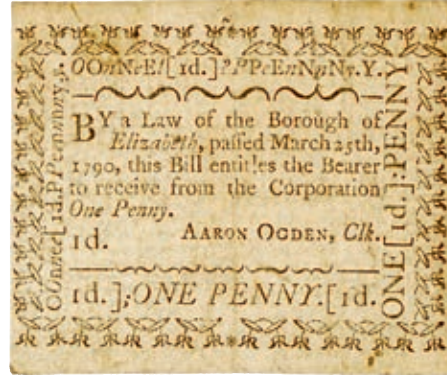 OOnNeE![1d.]?PPeEnNnNy.Y.
BY a Law of the Borough of
Elizabeth, paſſed March 25th,
1790, this Bill entitles the Bearer
to receive from the Corporation
One Penny.
1d.
AARON OGDEN, Clk.
1d.];ONE PENNY.[1d.
ONE[1d.]:PENNY